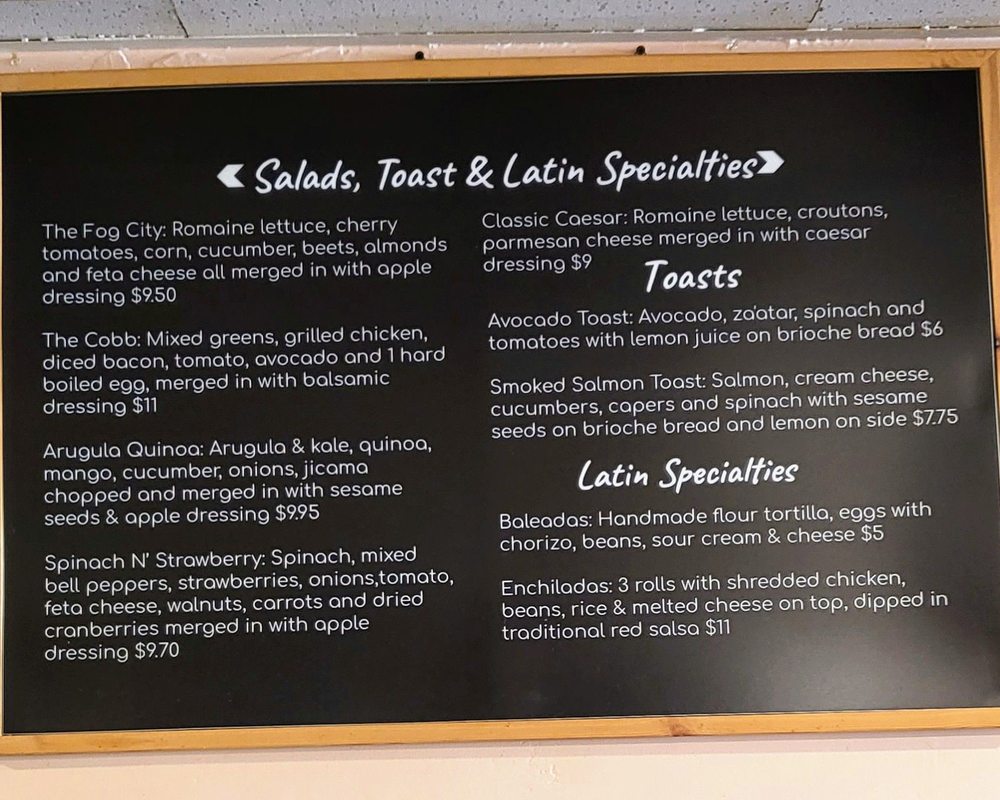 Salads, Toast & Latin Specialties
The Fog City: Romaine lettuce, cherry
tomatoes, corn, cucumber, beets, almonds
and feta cheese all merged in with apple
dressing $9.50
The Cobb: Mixed greens, grilled chicken,
diced bacon, tomato, avocado and 1 hard
boiled egg, merged in with balsamic
dressing $11
Arugula Quinoa: Arugula & kale, quinoa,
mango, cucumber, onions, jicama
chopped and merged in with sesame
seeds & apple dressing $9.95
Spinach N' Strawberry: Spinach, mixed
bell peppers, strawberries, onions,tomato,
feta cheese, walnuts, carrots and dried
cranberries merged in with apple
dressing $9.70
Classic Caesar: Romaine lettuce, croutons,
parmesan cheese merged in with caesar
dressing $9
Toasts
Avocado Toast: Avocado, za'atar, spinach and
tomatoes with lemon juice on brioche bread $6
Smoked Salmon Toast: Salmon, cream cheese,
cucumbers, capers and spinach with sesame
seeds on brioche bread and lemon on side $7.75
Latin Specialties
Baleadas: Handmade flour tortilla, eggs with
chorizo, beans, sour cream & cheese $5
Enchiladas: 3 rolls with shredded chicken,
beans, rice & melted cheese on top, dipped in
traditional red salsa $11